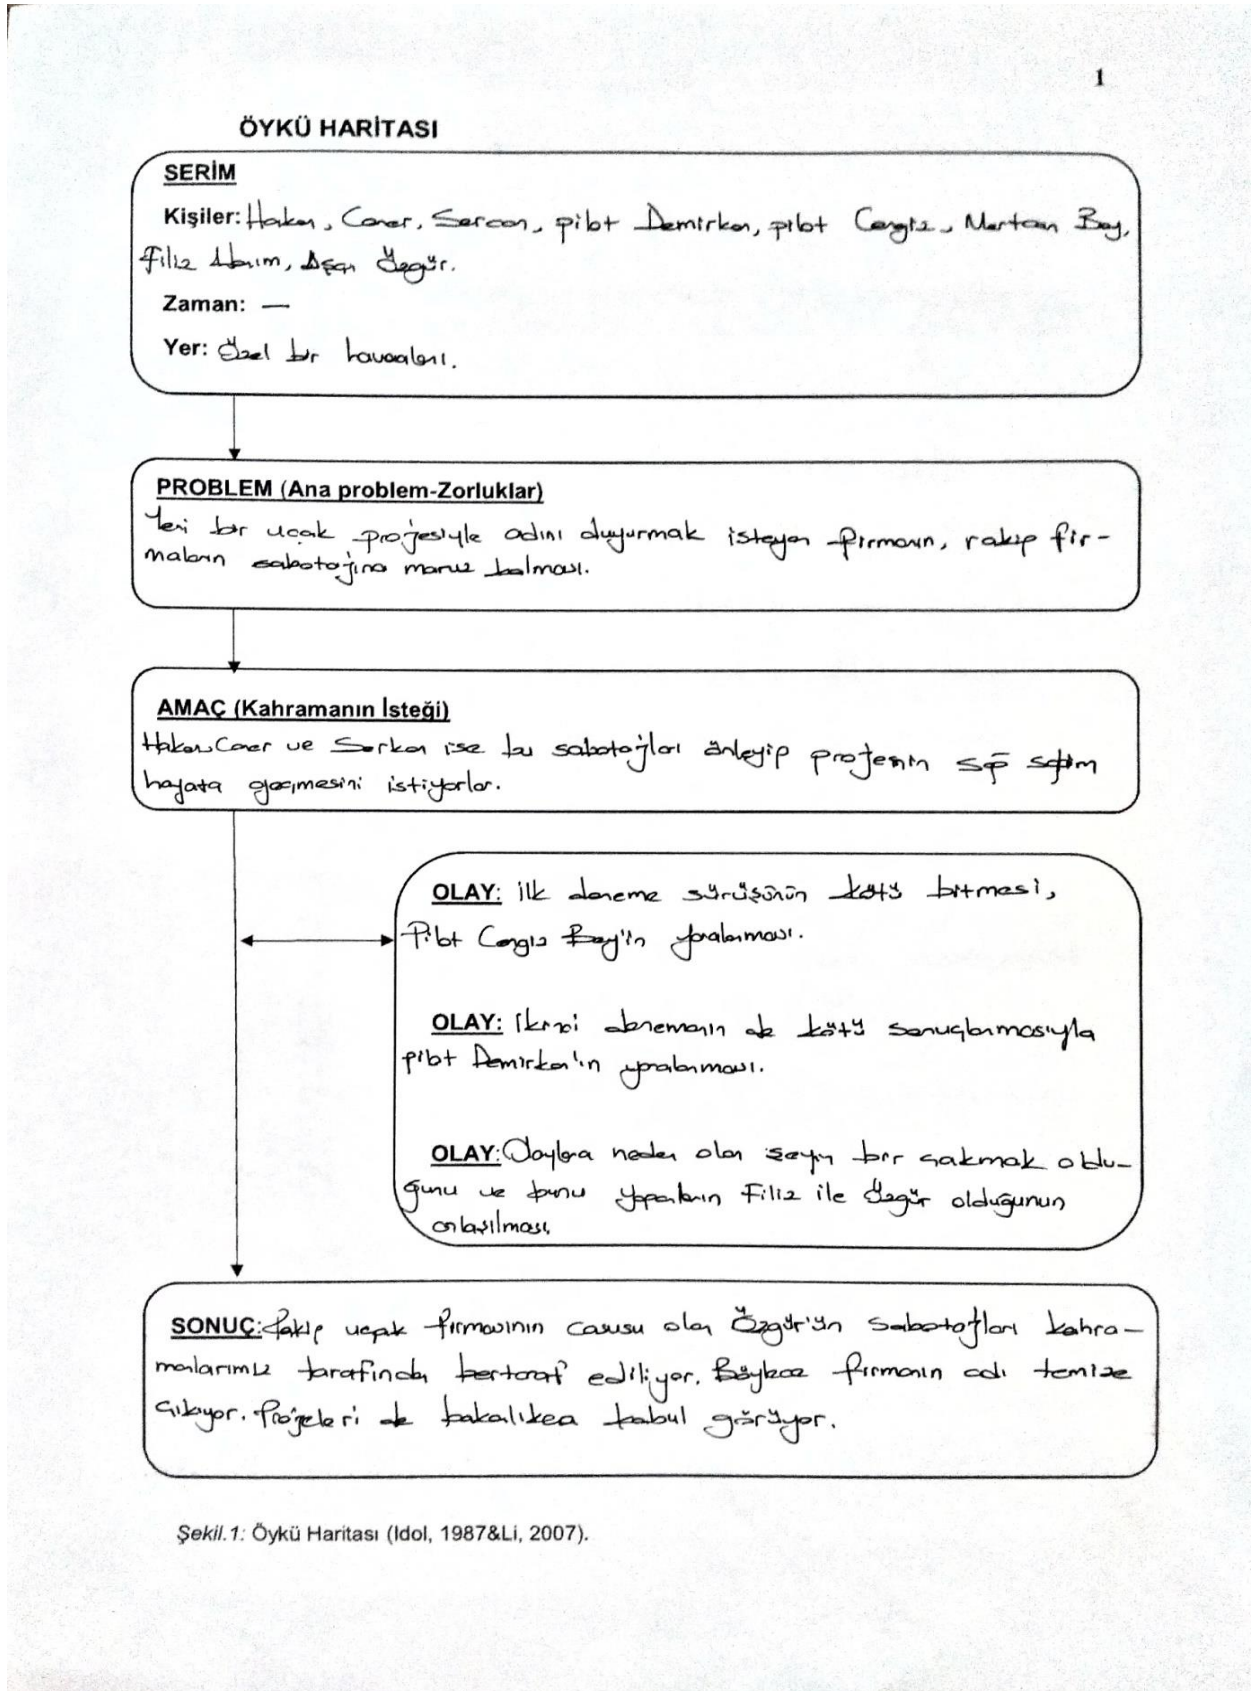 1
ÖYKÜ HARİTASI
SERİM
Kişiler: Hakan, Caner, Sercan, pilot Demirkan, pilot Cengiz, Mertcan Bey,
Filiz Hanım, Aşçı Özgür.
Zaman: —
Yer: Özel bir havaalanı.
PROBLEM (Ana problem-Zorluklar)
Yeni bir uçak projesiyle adını duyurmak isteyen firmanın, rakip fir-
maların sabotajına maruz kalması.
AMAÇ (Kahramanın İsteği)
Hakan, Caner ve Serkan ise bu sabotajları önleyip projenin
hayata geçmesini istiyorlar.
OLAY: İlk deneme sürüşünün kötü bitmesi,
Pilot Cengiz Bey'in yaralanması.
OLAY: İkinci denemenin de kötü sonuçlanmasıyla
pilot Demirkan'ın yaralanması.
OLAY: Olaylara neden olan şeyin bir çakmak oldu-
ğunu ve bunu yapanların Filiz ile Özgür olduğunun
anlaşılması.
SONUÇ: Rakip uçak firmasının casusu olan Özgür'ün sabotajları kahra-
manlarımız tarafından bertaraf ediliyor. Böylece firmanın adı temize
çıkıyor. Projeleri de bakalıkca kabul görüyor.
Şekil.1: Öykü Haritası (Idol, 1987&Li, 2007).